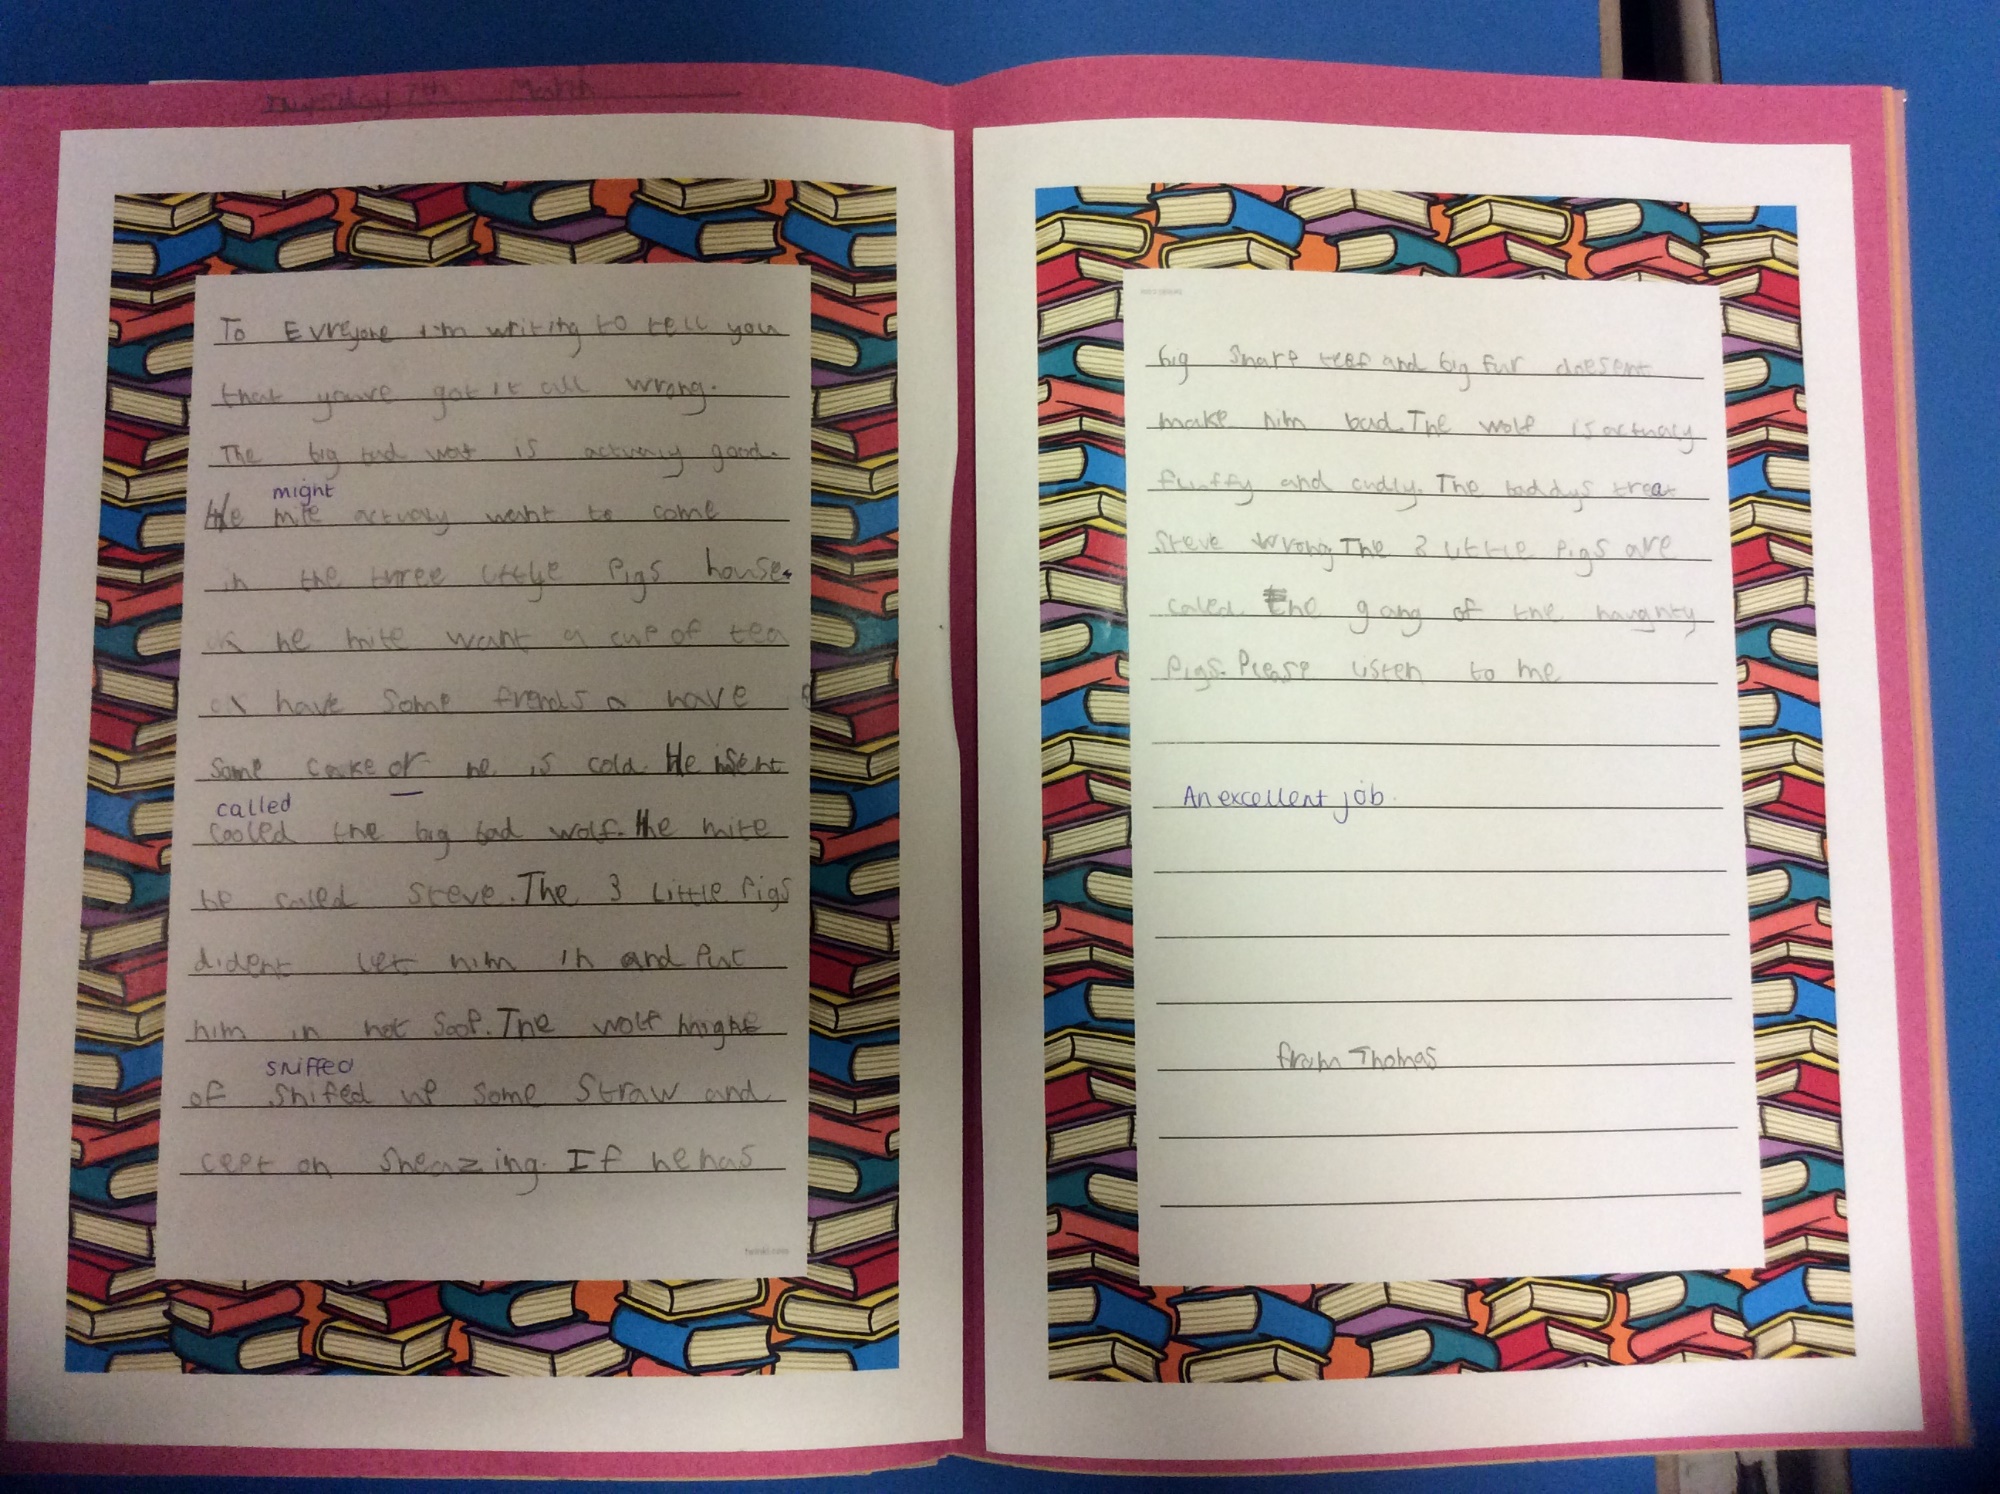 Thursday 7th March
To Evreyone i'm writing to tell you
that youve got it all wrong.
The big bad wolf is actualy good.
might
He mite actualy want to come
in the three little Pigs house.
he mite want a cup of tea
have some frends a have
some cake or he is cold. He isent
called
cooled the big bad wolf. He mite
be called Steve. The 3 Little Pigs
dident let him in and Put
him in hot Soop. The wolf might
sniffed
of Snifed up some Straw and
cept on Sneazing. If he has
big sharp teef and big fur doesent
make him bad. The wolf is actualy
fluffy and cudly. The baddys treat
Steve wrong. The 3 Little Pigs are
called the gang of the naughty
Pigs. Please listen to me
An excellent job.
from Thomas
twinkl.com